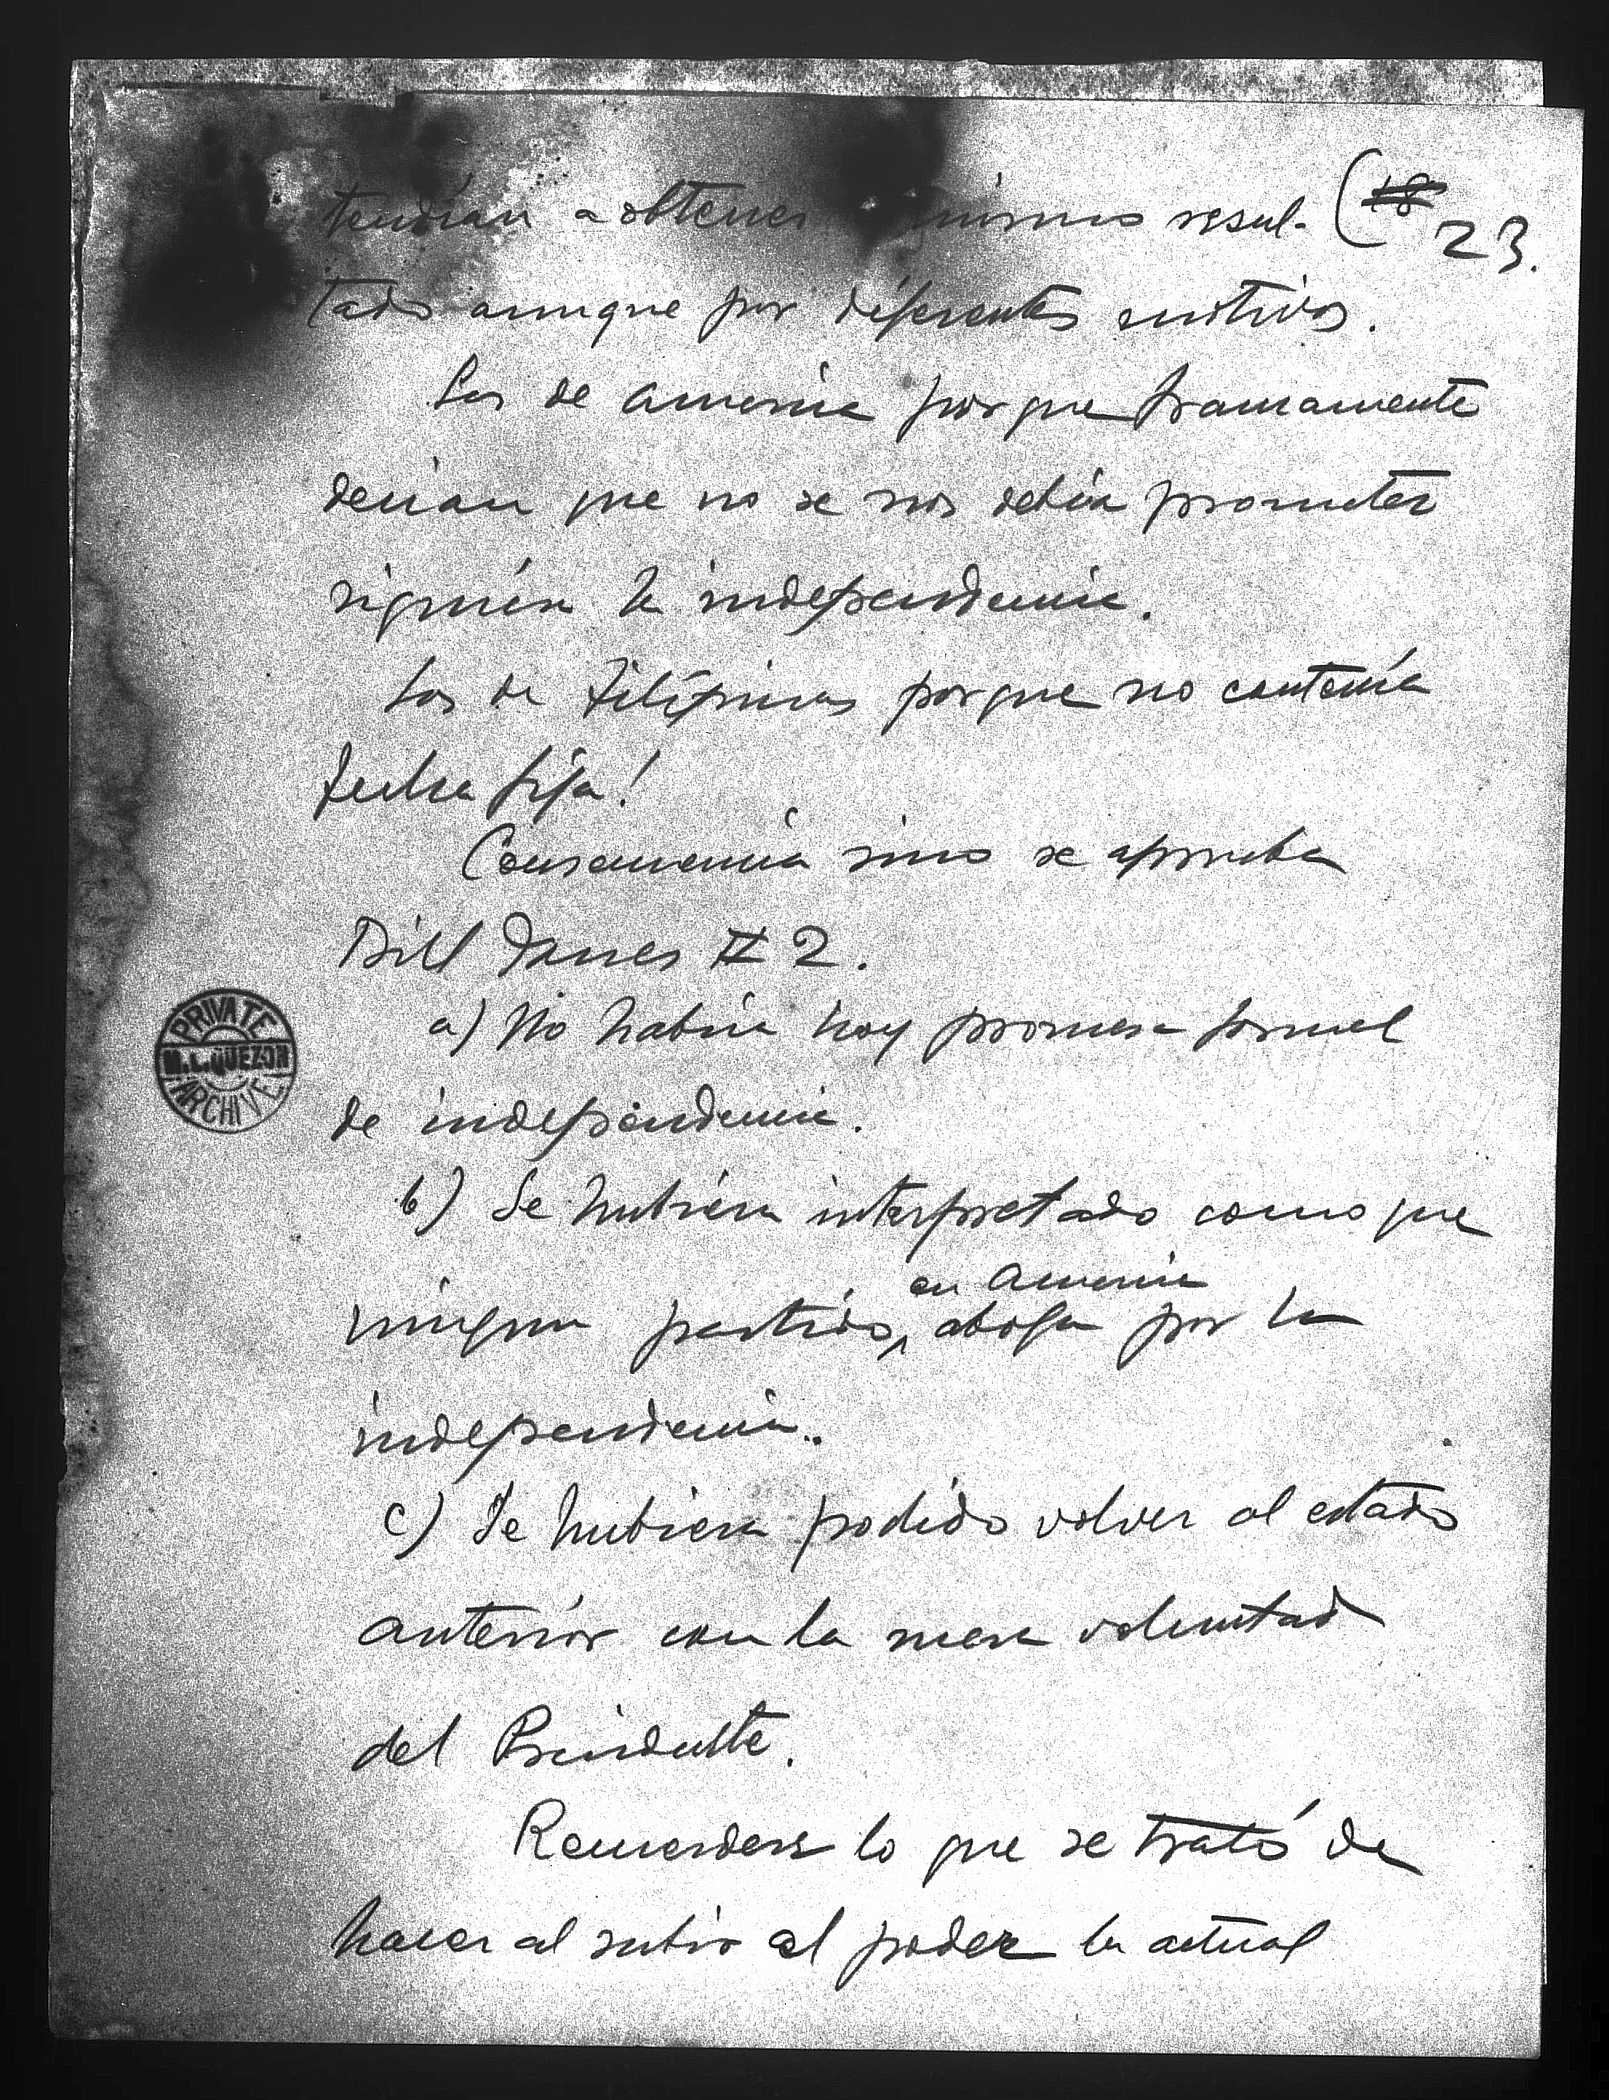 (18 23.
tendían a obtener mismo resul-
tado aunque por diferentes motivos.
Los de America porque francamente
decian que no se nos debia prometer
siquiera la independencia.
Los de Filipinas porque no contenía
fecha fija!
Consecuencia sino se aprueba
Bill Jones # 2.
a) No habria hoy promesa formal
de independencia.
b) Se hubiera interpretado como que
ningun partido en America aboga por la
independencia.
c) Se hubiera podido volver al estado
anterior con la mera voluntad
del Presidente.
Recuerdese lo que se trató de
hacer al subir al poder la actual
PRIVATE
M.L.QUEZON
ARCHIVE